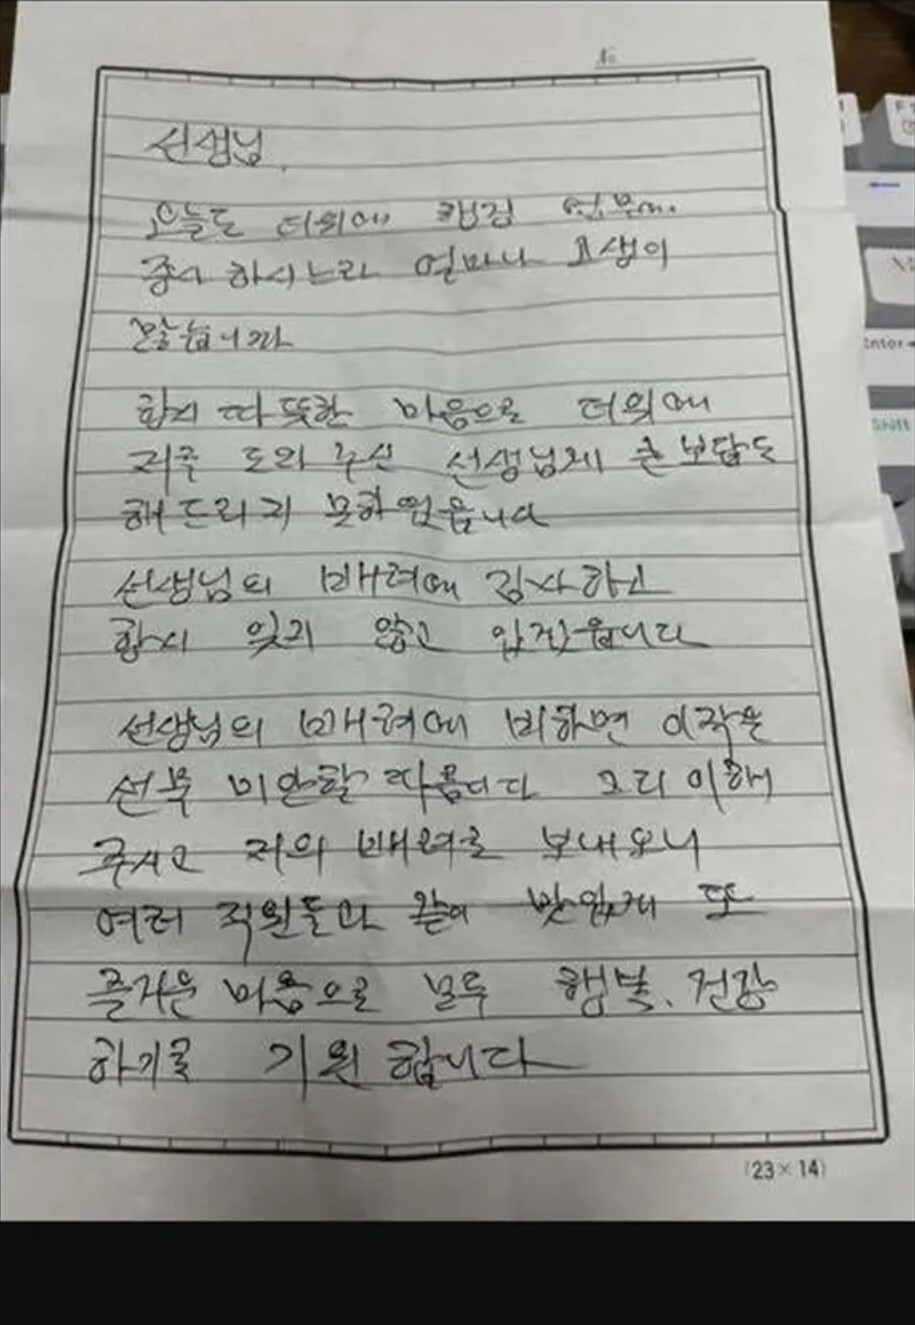 선생님.
오늘도 더위에
종사 하시느라 얼마나 고생이
많습니까
항시 따뜻한 마음으로 더위에
저를 도와 주신 선생님께 큰 보답도
해 드리지 못하였읍니다
선생님의 배려에 감사하고
항시 잊지 않고 있읍니다
선생님의 배려에 비하면 이 작은
선물 미안할 따름니다 그리 이해
주시고 저의 배려로 보내오니
여러 직원들과 같이 맛있게 또
즐거운 마음으로 모두 행복, 건강
하기를 기원 합니다
(23×14)